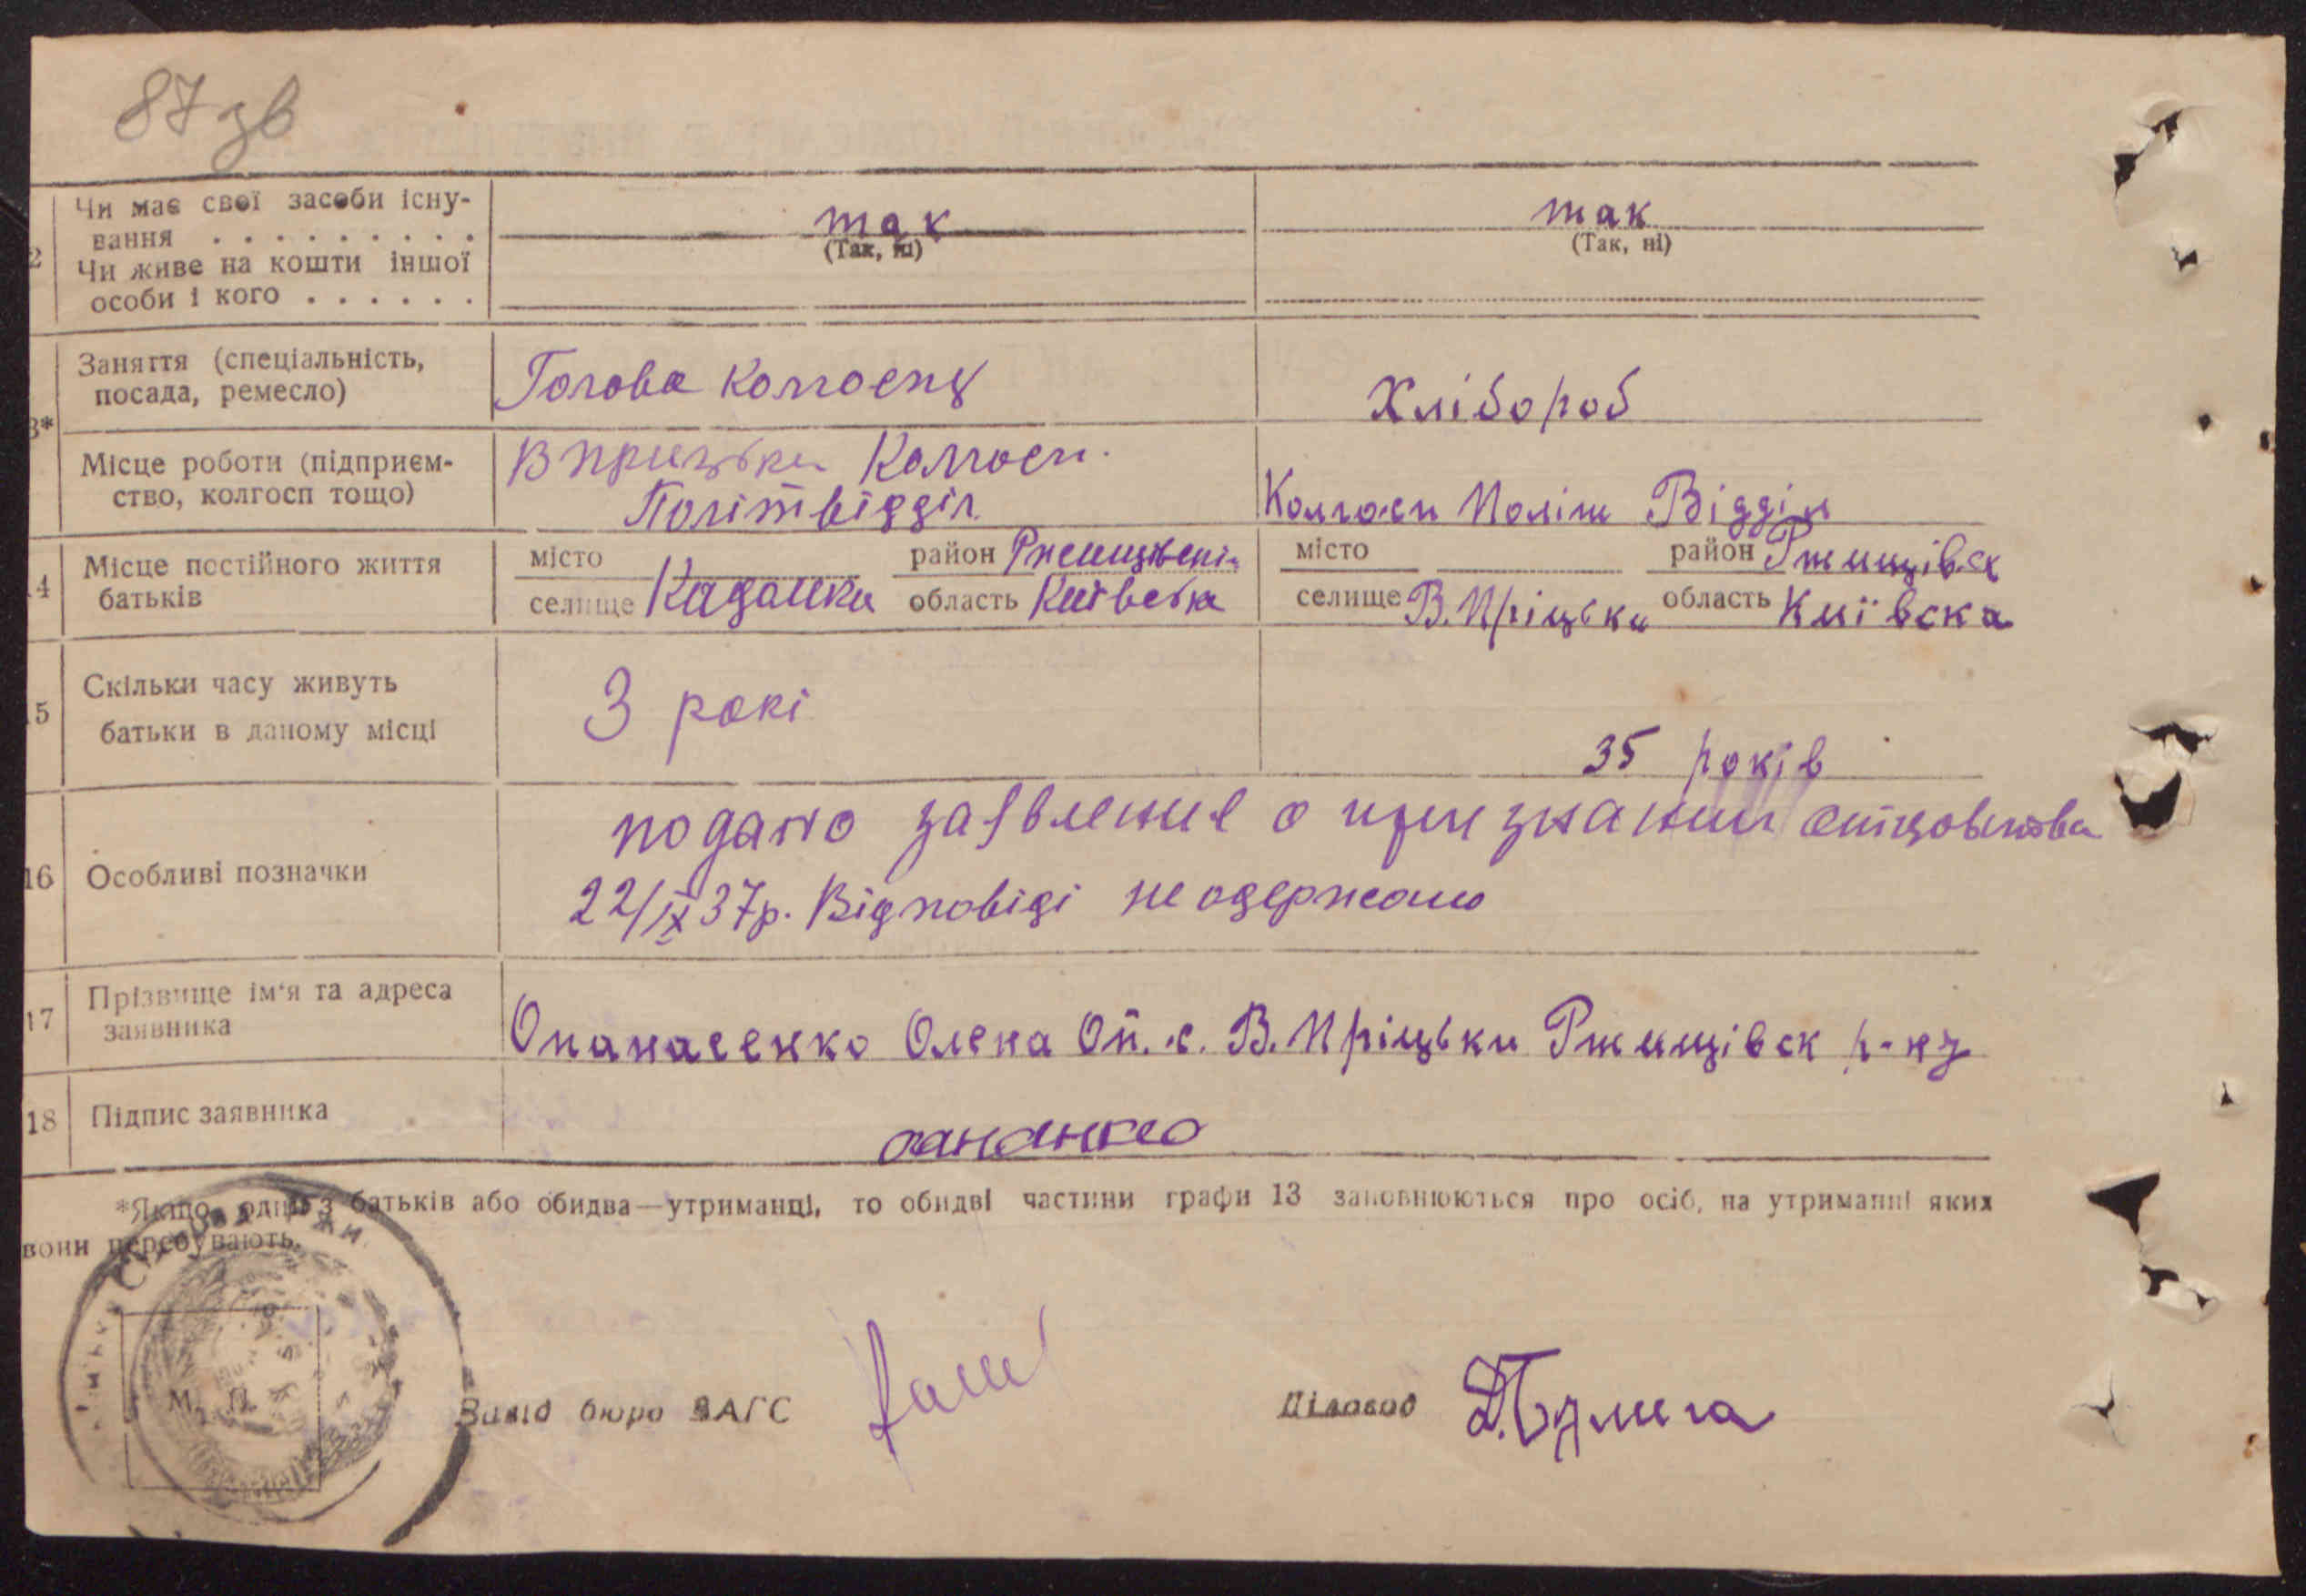 87 зв
2 Чи має свої засоби існу- так так
вання . . . . . . . . . . (Так, ні) (Так, ні)
Чи живе на кошти іншої
особи і кого . . . . . .
3* Заняття (спеціальність, Голова колгоспу Хлібороб
посада, ремесло)
Місце роботи (підприєм- В прицьки Колгосп.
ство, колгосп тощо) Політвідділ Колгосп Політ Відділ
4 Місце постійного життя місто район місто район Ржищівск
батьків селище область Київська селище В. Пріцьки область Київска
5 Скільки часу живуть 3 рокі
батьки в даному місці 35 років
16 Особливі позначки подано заявление о признании отцовства
22/IX 37р. Відповіді не одержано
17 Прізвище ім'я та адреса
заявника Опанасенко Олена Оп. с. В. Пріцьки Ржищівск р-ну
18 Підпис заявника
*Якщо один з батьків або обидва—утриманці, то обидві частини графи 13 заповнюються про осіб, на утриманні яких
вони перебувають.
М. П. Завід бюро ЗАГС Діловод